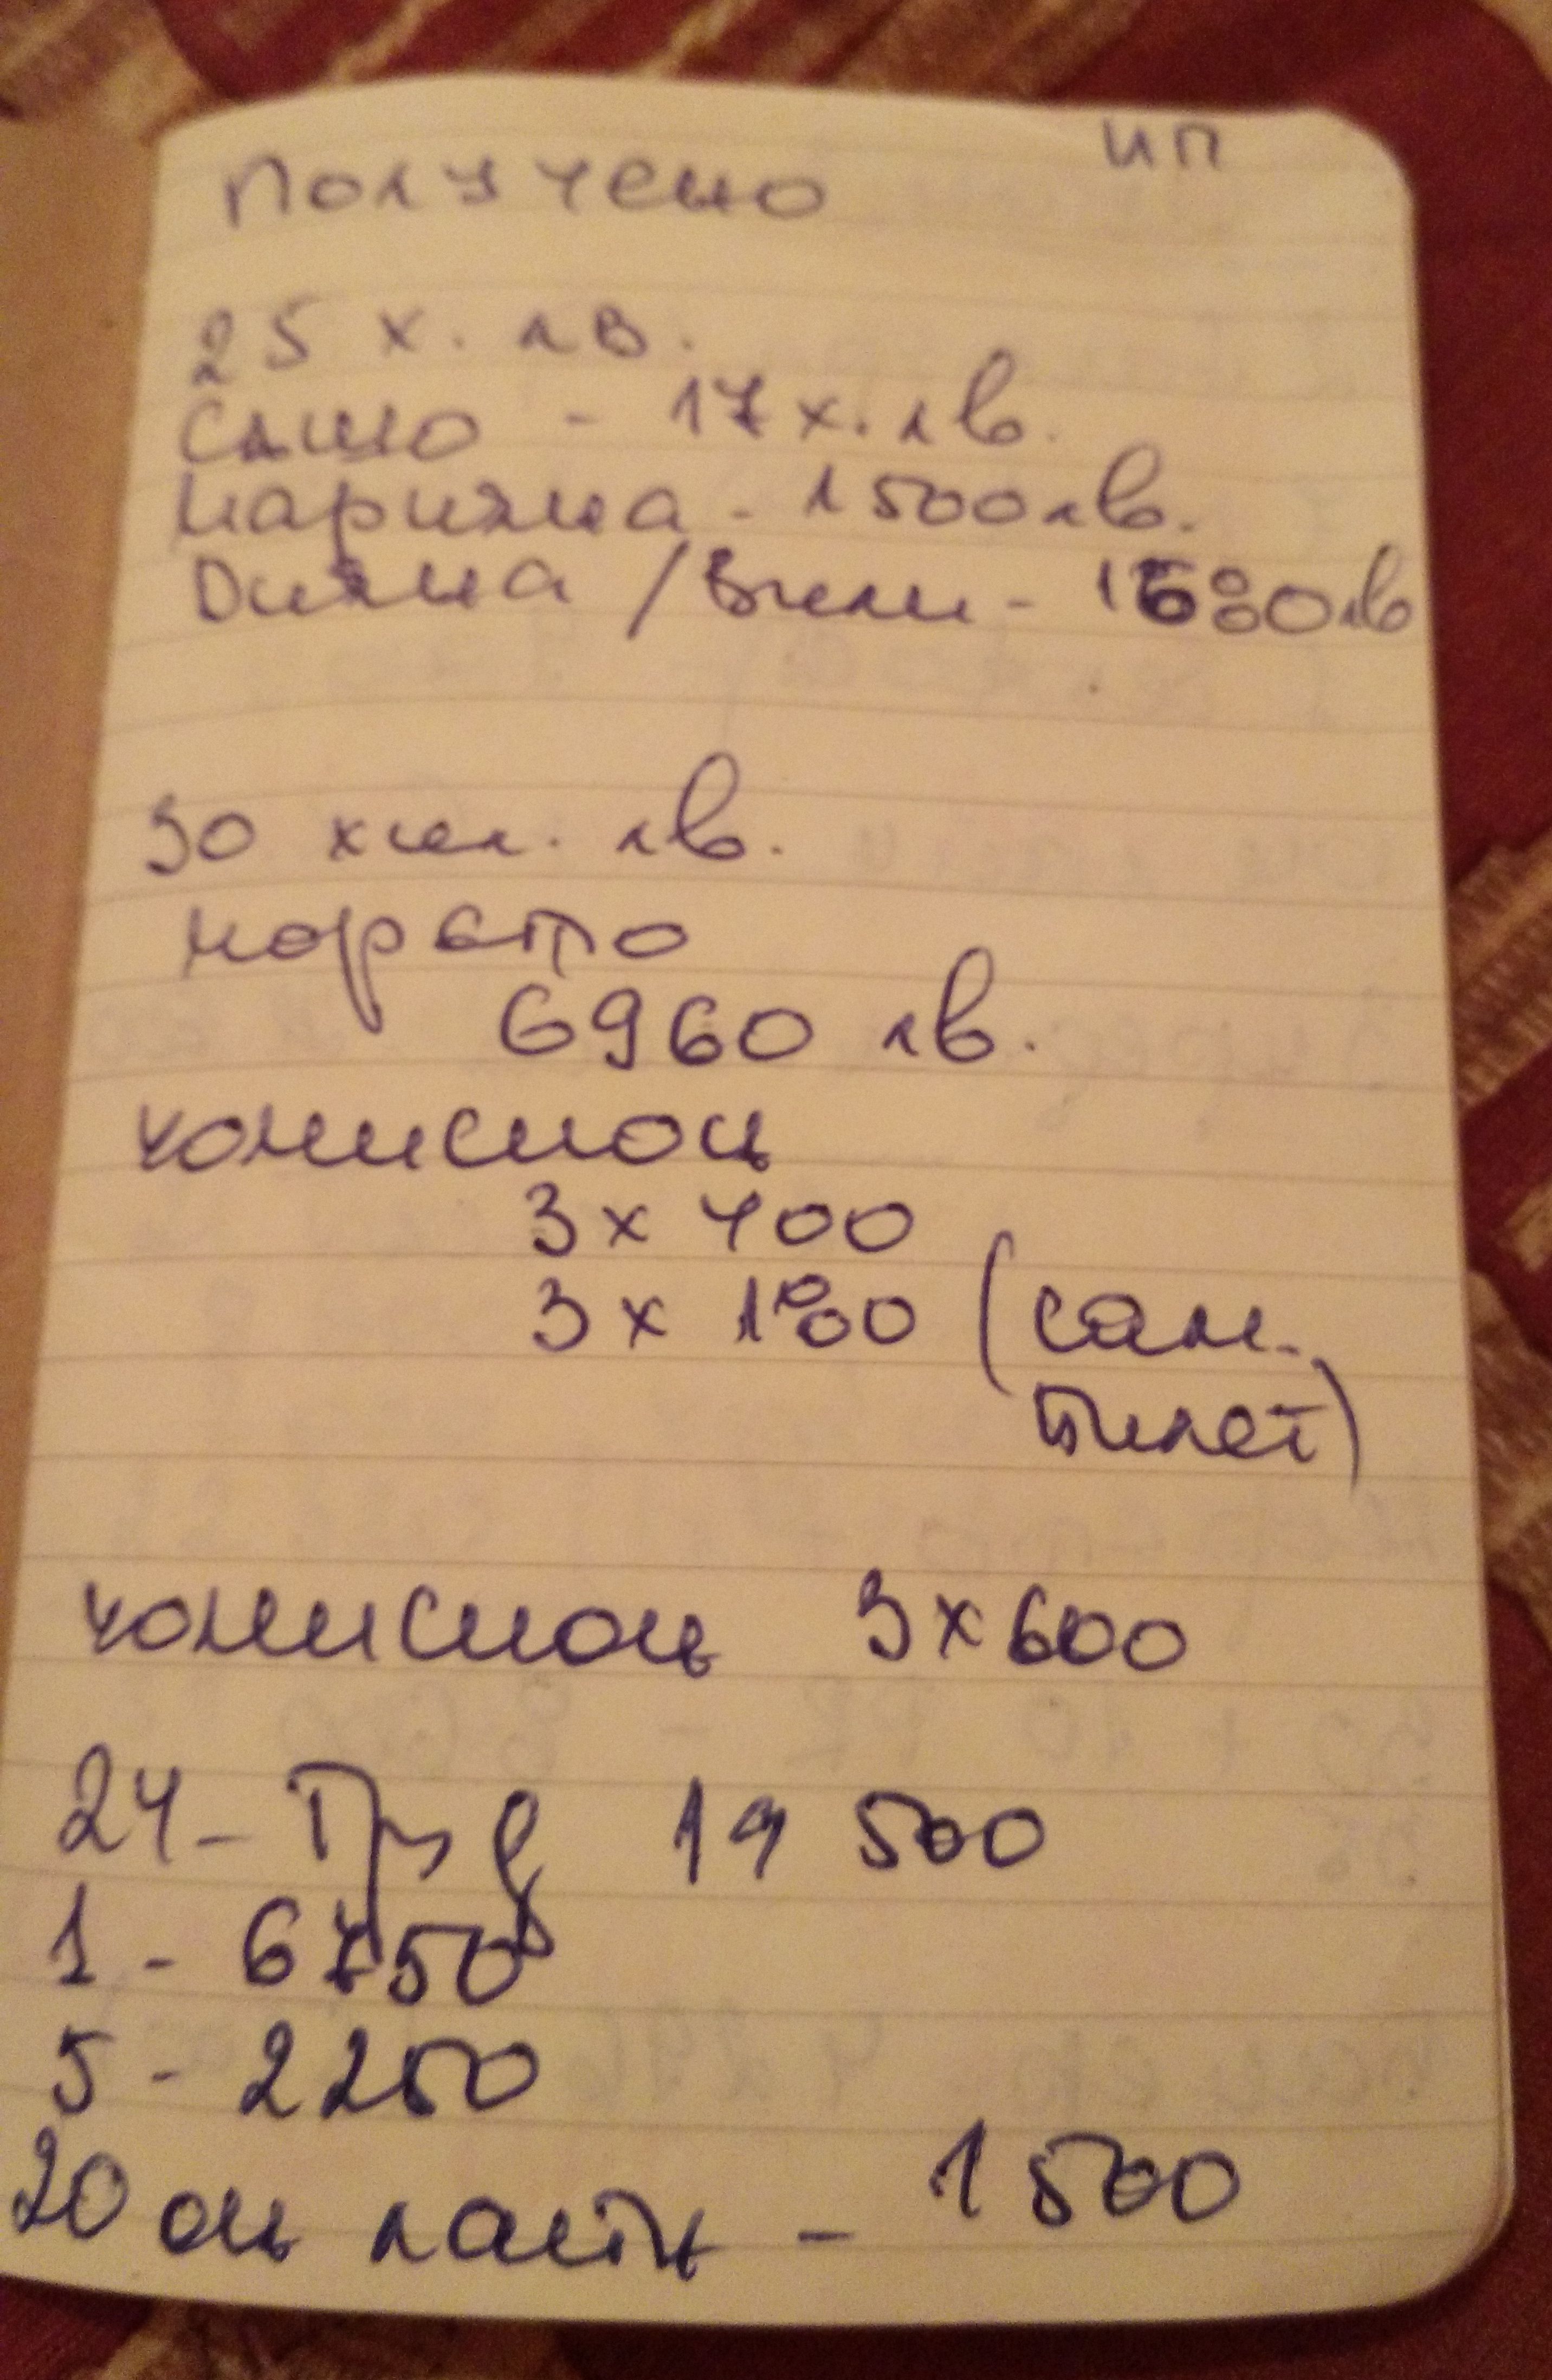 ИП
Получено
25 х. лв.
Сашо - 17 х. лв.
Марияна - 1500 лв.
Дияна / Вили - лв
30 хил. лв.
морето
6960 лв.
комисион
3 x 400
3 x 1000 (сам.
билет)
комисион 3 x 600
24 - 19 500
1 - 6750
5 - 2250
20 он - 1 500